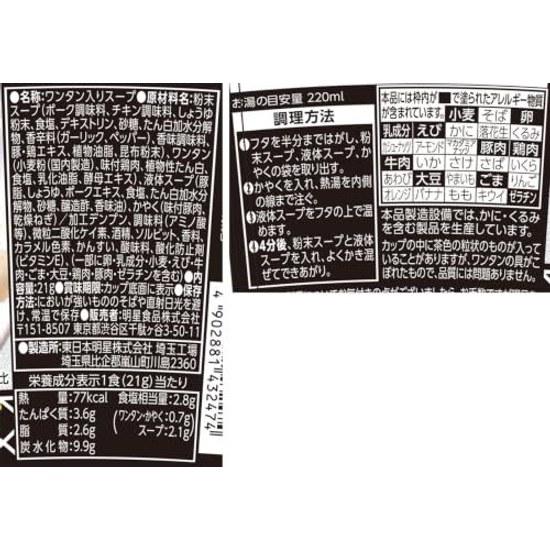 ●名称:ワンタン入りスープ●原材料名:粉末
スープ(ポーク調味料、チキン調味料、しょうゆ
粉末、食塩、デキストリン、砂糖、たん白加水分解
物、香辛料(ガーリック、ペッパー)、香味調味料、
豚・鶏エキス、植物油脂、昆布粉末)、ワンタン
(小麦粉(国内製造)、味付鶏肉、植物性たん白、
食塩、乳化油脂、酵母エキス)、液体スープ(豚
脂、しょうゆ、ポークエキス、食塩、たん白加水分
解物、砂糖、醸造酢、香味油)、かやく(味付豚肉、
乾燥ねぎ)/加工デンプン、調味料(アミノ酸
等)、微粒二酸化ケイ素、酒精、ソルビット、香料、
カラメル色素、かんすい、酸味料、酸化防止剤
(ビタミンE)、(一部に卵・乳成分・小麦・えび・牛
肉・ごま・大豆・鶏肉・豚肉・ゼラチンを含む)●内
容量:21g●賞味期限:カップ底面に表示●保存
方法:においが強いもののそばや直射日光を避
け、常温で保存●販売者:明星食品株式会社
〒151-8507 東京都渋谷区千駄ヶ谷3-50-11
●製造所:東日本明星株式会社 埼玉工場
埼玉県比企郡嵐山町川島2360
栄養成分表示1食(21g)当たり
熱量:77kcal 食塩相当量:2.8g
たんぱく質:3.6g (ワンタン・かやく:0.7g
脂質:2.6g スープ:2.1g)
炭水化物:9.9g
4902881432474
お湯の目安量 220ml
調理方法
①フタを半分まではがし、粉
末スープ、液体スープ、かや
くの袋を取り出す。
②かやくを入れ、熱湯を内側
の線まで注ぐ。
③液体スープをフタの上で温
めます。
④4分後、粉末スープと液体
スープを入れ、よくかき混
ぜてできあがり。
本品には枠内が■で塗られたアレルギー物質
が含まれています。 小麦 そば 卵
乳成分 えび かに 落花生 くるみ
カシューナッツ アーモンド マカダミアナッツ 豚肉 鶏肉
牛肉 いか さけ さば いくら
あわび 大豆 やまいも ごま りんご
オレンジ バナナ もも キウイ ゼラチン
本品製造設備では、かに・くるみ
を含む製品を生産しています。
カップの中に茶色の粒状のものが入って
いることがありますが、ワンタンの具がこ
ぼれたもので、品質には問題ありません。